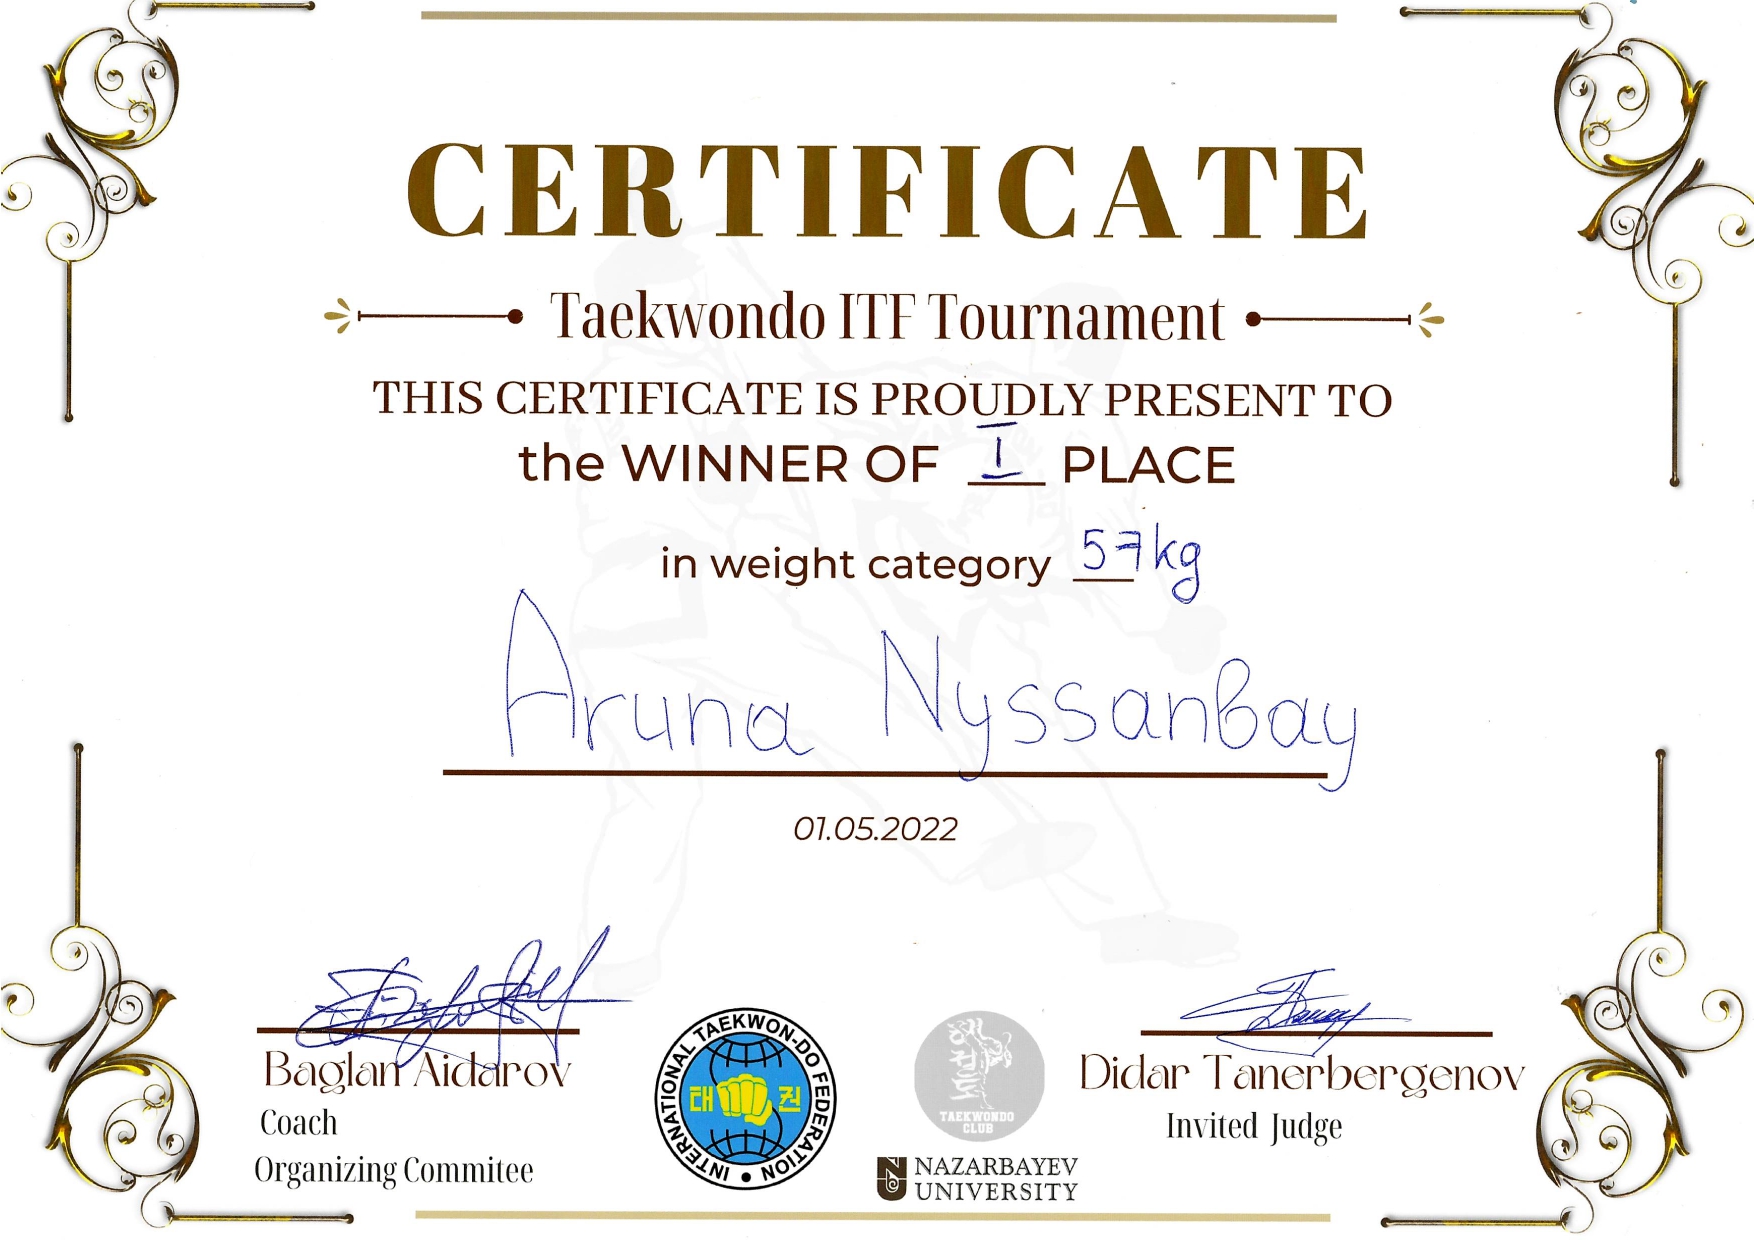 CERTIFICATE
Taekwondo ITF Tournament
THIS CERTIFICATE IS PROUDLY PRESENT TO
the WINNER OF I PLACE
in weight category 57kg
Aruna Nyssanbay
01.05.2022
Baglan Aidarov
Coach
Organizing Commitee
INTERNATIONAL TAEKWON-DO FEDERATION
태권
TAEKWONDO
CLUB
NAZARBAYEV
UNIVERSITY
Didar Tanerbergenov
Invited Judge